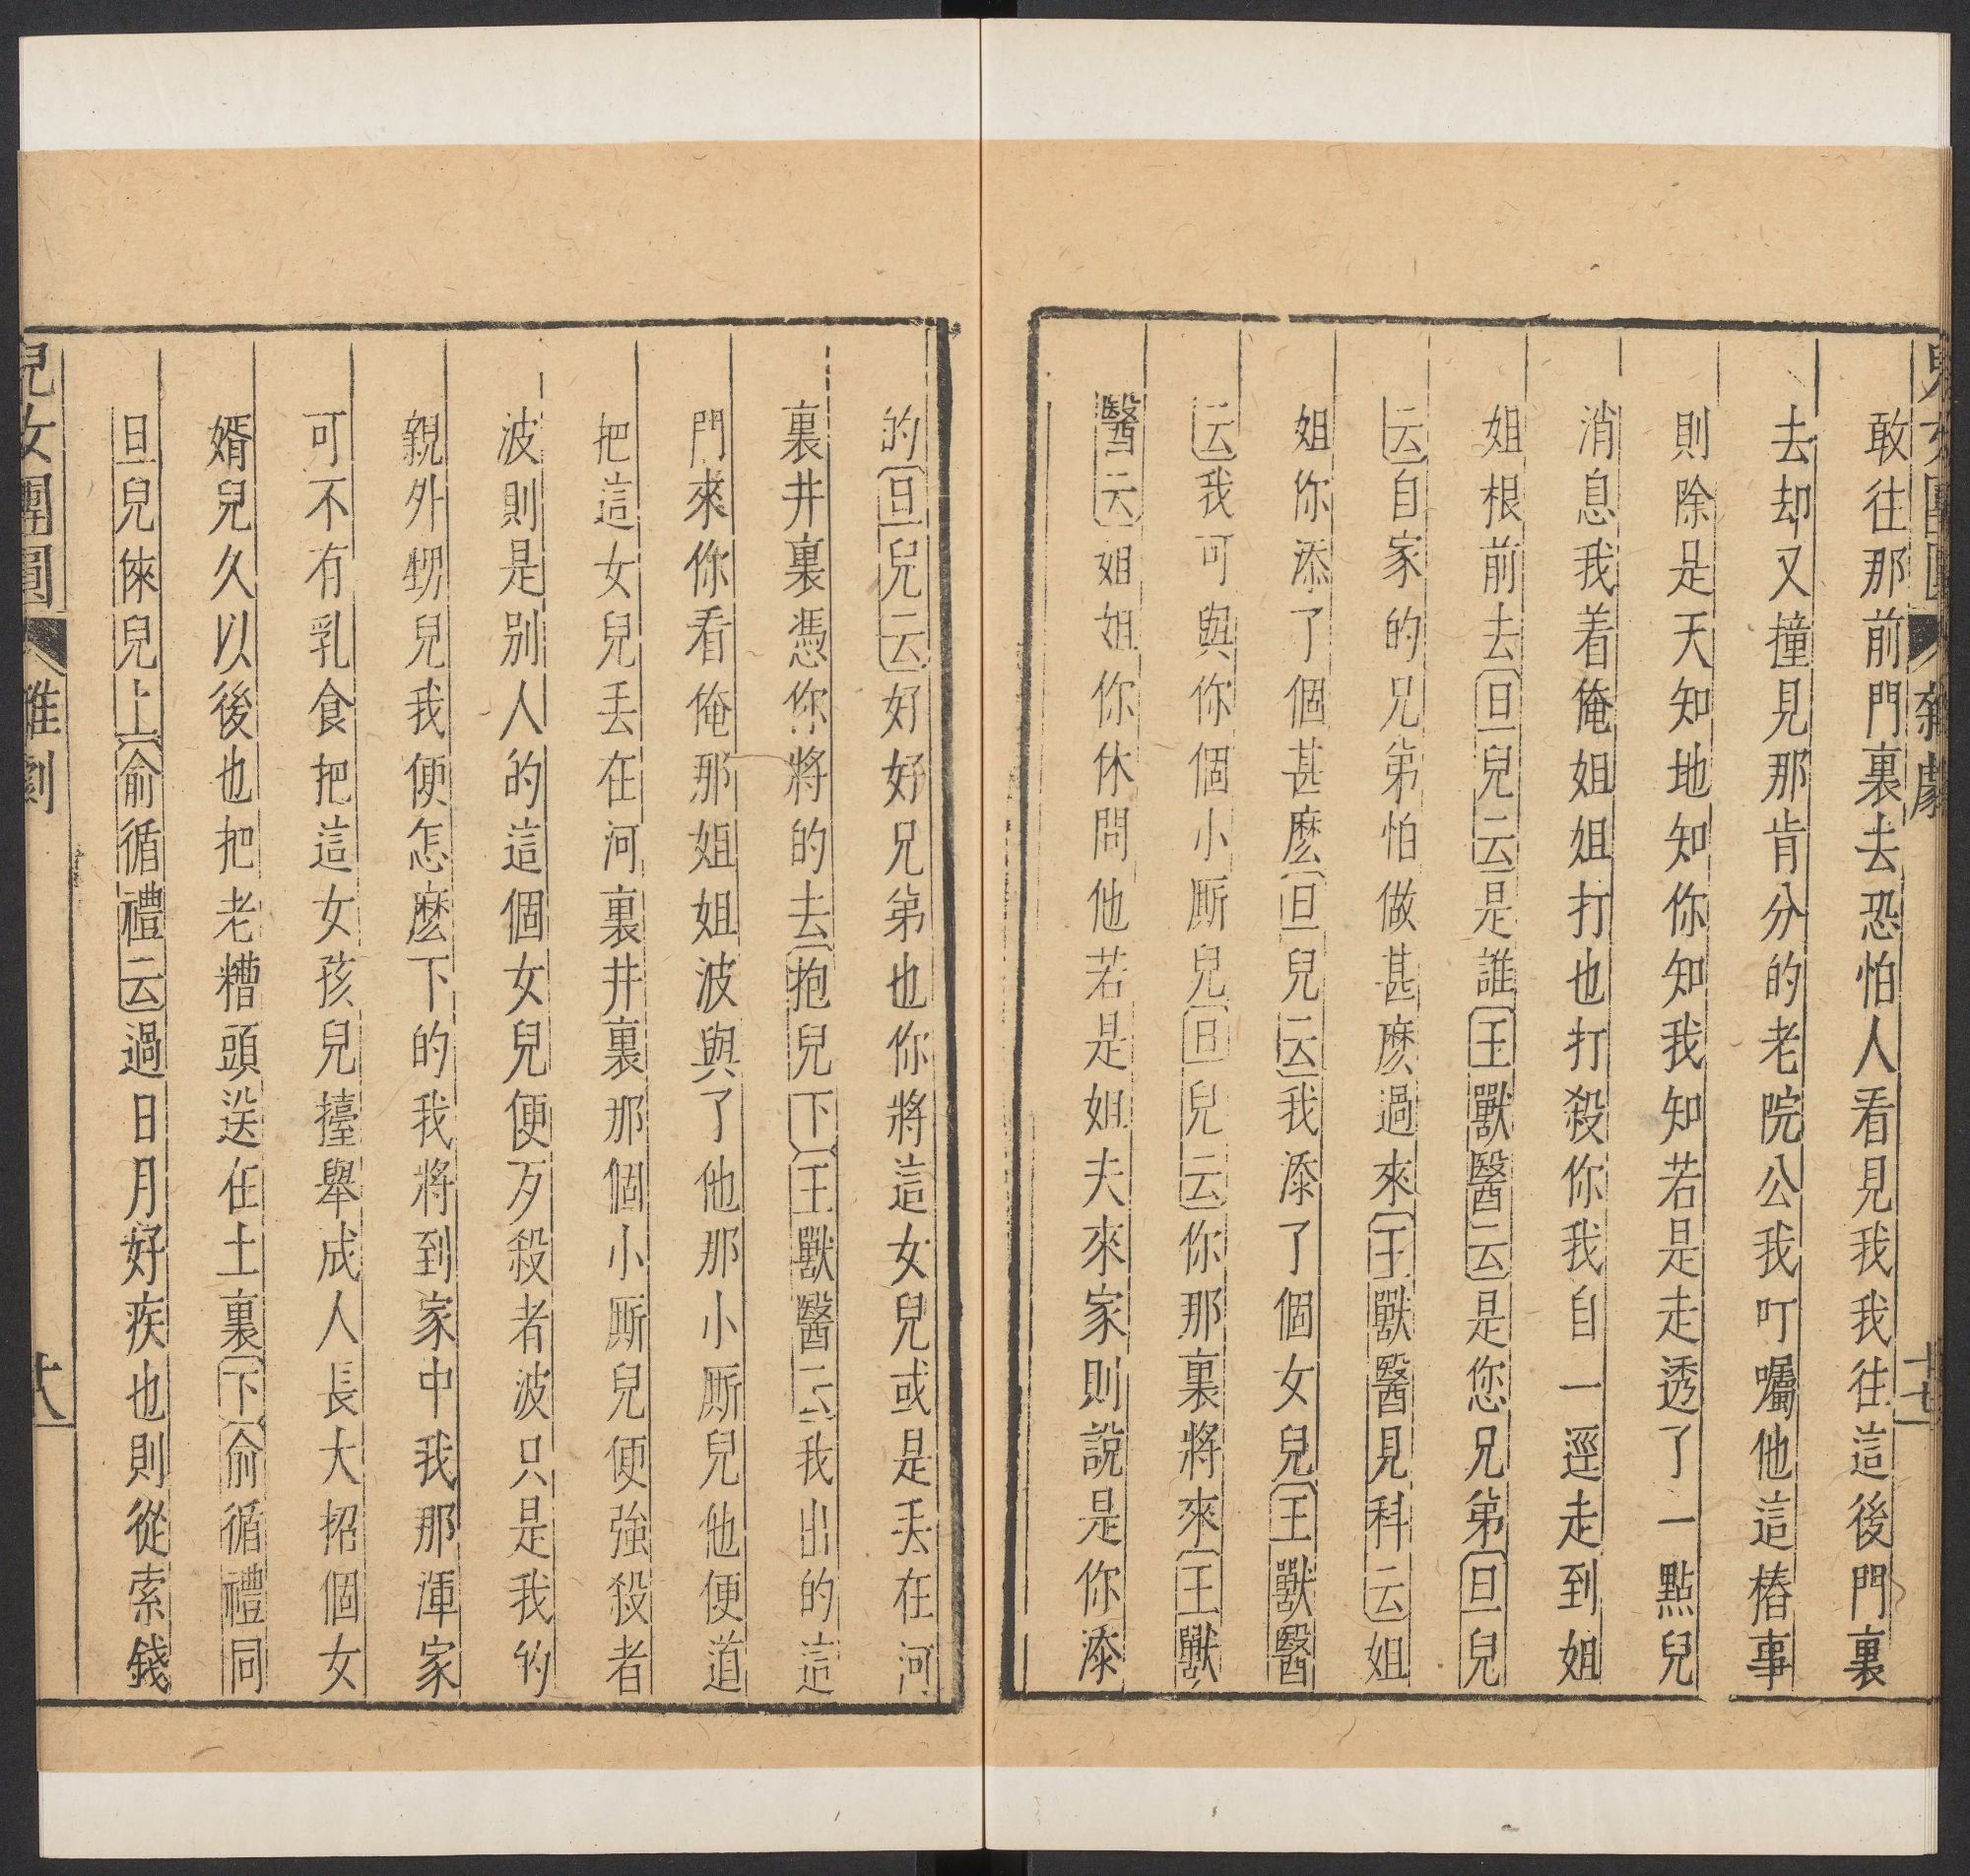 敢往那前門裏去恐怕人看見我我往這後門裏
去却又撞見那肯分的老院公我叮囑他這樁事
則除是天知地知你知我知若是走透了一點兒
消息我着俺姐姐打也打殺你我自一逕走到姐
姐根前去旦兒云是誰王獸醫云是您兄弟旦兒
云自家的兄弟怕做甚麽過來王獸醫見科云姐
姐你添了個甚麽旦兒云我添了個女兒王獸醫
云我可與你個小厮兒旦兒云你那裏將來王獸
醫云姐姐你休問他若是姐夫來家則說是你添
的旦兒云好好兄弟也你將這女兒或是丟在河
裏井裏憑你將的去抱兒下王獸醫云我出的這
門來你看俺那姐姐波與了他那小厮兒他便道
把這女兒丟在河裏井裏那個小厮兒便強殺者
波則是别人的這個女兒便歹殺者波只是我的
親外甥兒我便怎麽下的我將到家中我那渾家
可不有乳食把這女孩兒擡舉成人長大招個女
婿兒久以後也把老糟頭送在土裏下俞循禮同
旦兒倈兒上俞循禮云過日月好疾也則從索錢
兒女團圓
雜劇
十八